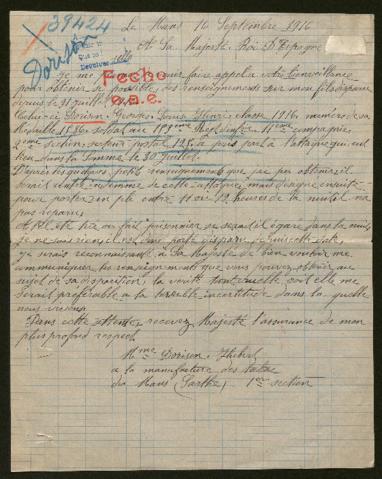 39424
Le Mans 14 Septembre 1916
A Sa Majesté Roi d'Espagne
Dorison
Fecho
o.a.e.
Je me faire appel a votre bienveillance
pour obtenir si possible, des renseignements sur mon fils disparu
depuis le 31 juillet
Celui-ci Georges Louis classe 1916, numéro de sa
Médaille soldat au Reg. d'Infie 11eme compagnie
section, secteur postal 125, a pris part à l'attaque qui eut
lieu dans la Somme le 30 juillet.
D'après quelques petits renseignements que j'ai pu obtenir il
serait rentré indemne de cette attaque, mais désigné ensuite
pour porter un pli entre 11 ou 12 heures de la nuit il n'a
pas reparu.
A-t-il été tué ou fait prisonnier se serait-il égaré dans la nuit
je ne sais rien, il est sans porté disparu depuis cette date,
je serais reconnaissante à Sa Majesté de bien vouloir me
communiquer les renseignements que vous pouvez obtenir au
sujet de sa disparition, la vérité soit elle me
serait préférable à la terrible incertitude dans laquelle
nous vivons.
Dans cette attente recevez Majesté l'assurance de mon
plus profond respect.
Mme Dorison
a la manufacture des tabac
du Mans (Sarthe) 1ere section